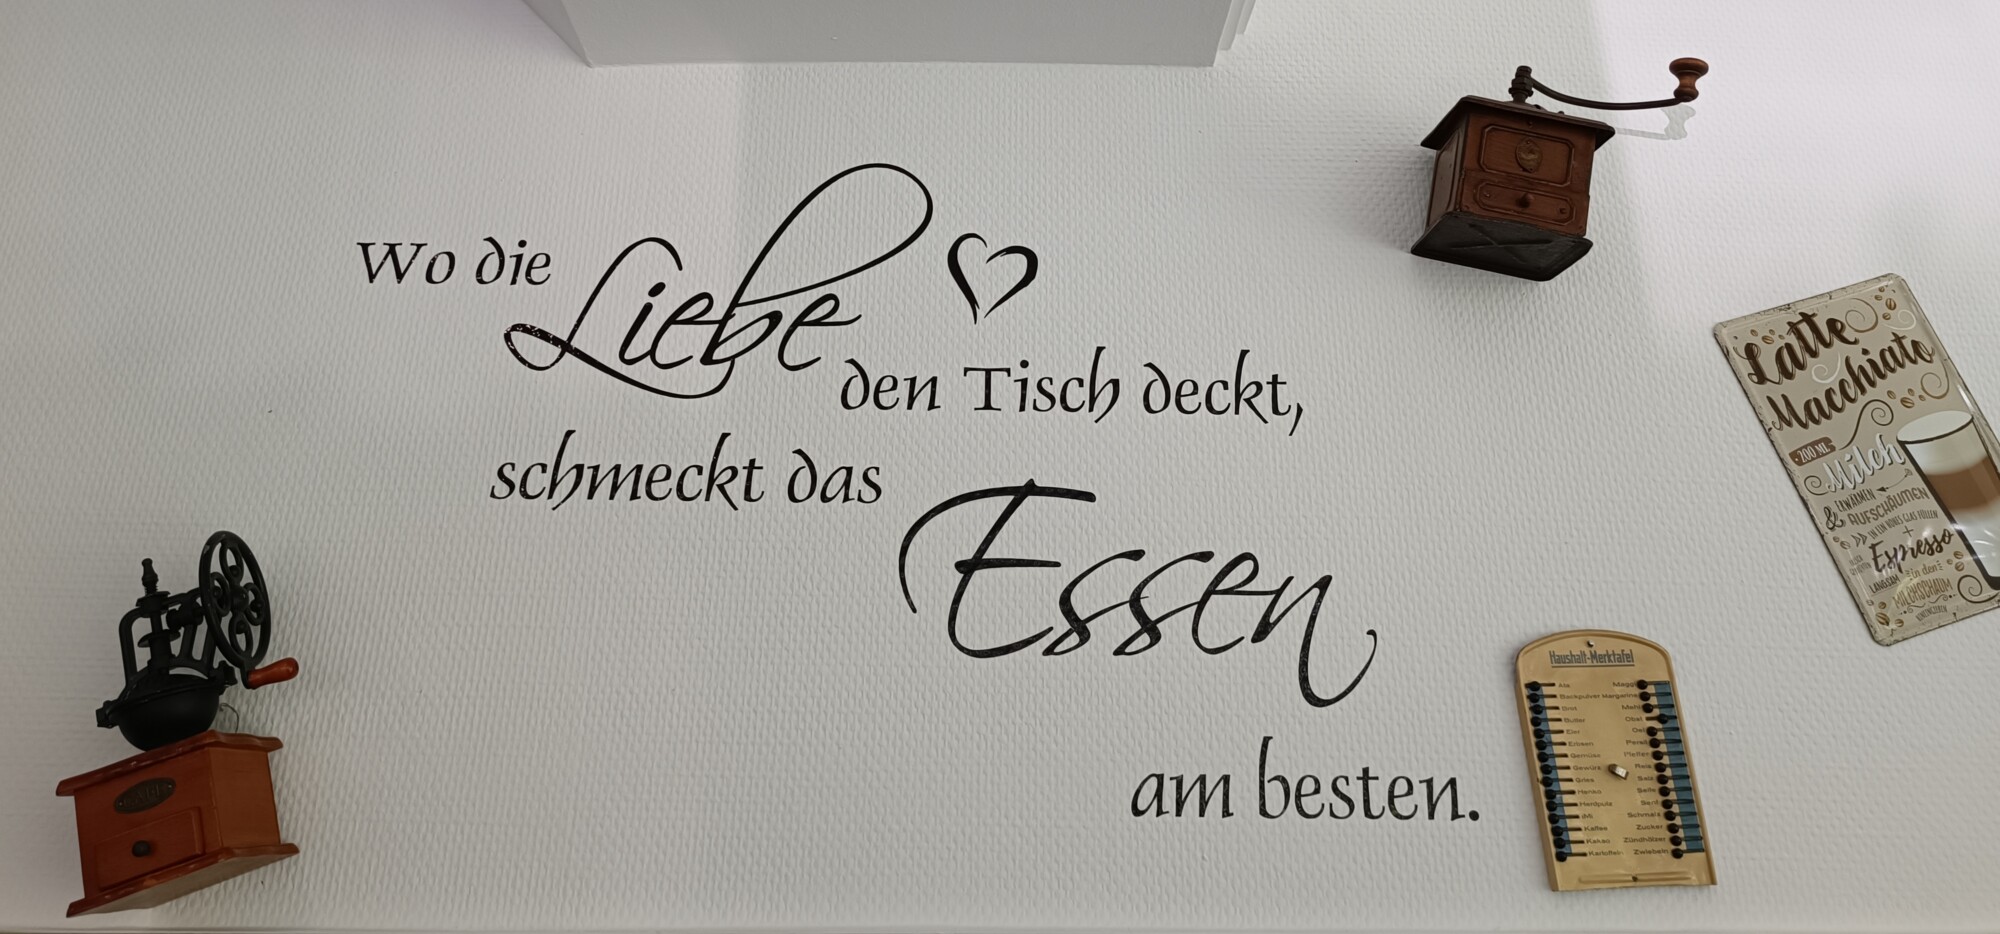 Wo die
Liebe
den Tisch deckt,
schmeckt das
Essen
am besten.
Latte
Macchiato
200 ML
Milch
ERWÄRMEN
& AUFSCHÄUMEN
IN EIN HOHES GLAS FÜLLEN
+
Espresso
LANGSAM in den
MILCHSCHAUM
Haushalt-Merktafel
Ata Maggi
Backpulver Margarine
Brot Mehl
Butter Obst
Eier Oel
Erbsen Persil
Gemüse Pfeffer
Gewürz Reis
Gries Salz
Henko Seife
Herdputz Senf
iMi Schmalz
Kaffee Zucker
Kakao Zündhölzer
Kartoffeln Zwiebeln